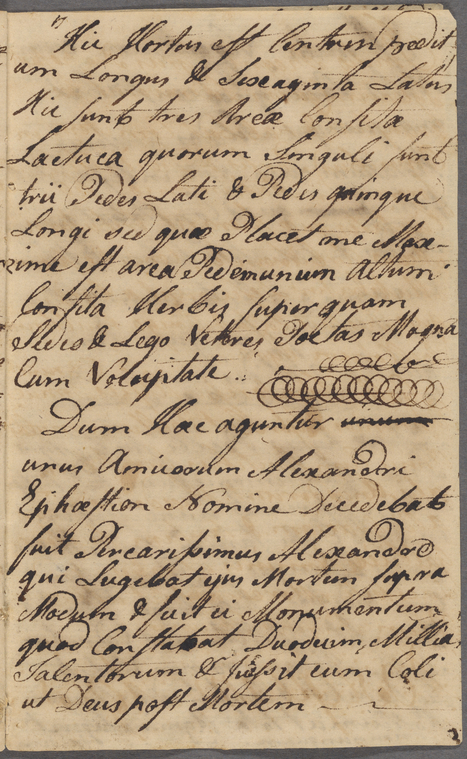 Hic Hortus est Centum pedit
um Longus & Sexaginta Latus
Hic sunt tres Areæ Consitæ
Lactuca quorum Singuli sunt
trii Pedes Lati & Pedis quinque
Longi sed quæ Placet me Max-
zime est area Pedemunium Altum
Consita Herbis super quam
Sedeo & Lego Vettres Poetas Magna
Cum Voluptate
Dum Hæc aguntur unum
unus Amicorum Alexandri
Ephæstion Nomine Decedebat
fuit Percarissimus Alexandro
qui Lugebat ejus Mortem supra
Modum & fuit ei Monumentum
quod Constabat Duodecim Millia
Talentorum & jussit eum Coli
ut Deus post Mortem